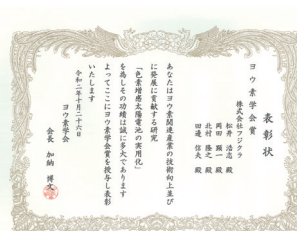 表彰状
ヨウ素学会賞
株式会社フジクラ
松井 浩志 殿
岡田 顕一 殿
北村 隆之 殿
田邉 信夫 殿
あなたはヨウ素関連産業の技術向上並び
に発展に貢献する研究
「色素増感太陽電池の実用化」
を為しその功績は誠に多大であります
よってここにヨウ素学会賞を授与し表彰
いたします
令和二年十月二十六日
ヨウ素学会
会長 加納 博文